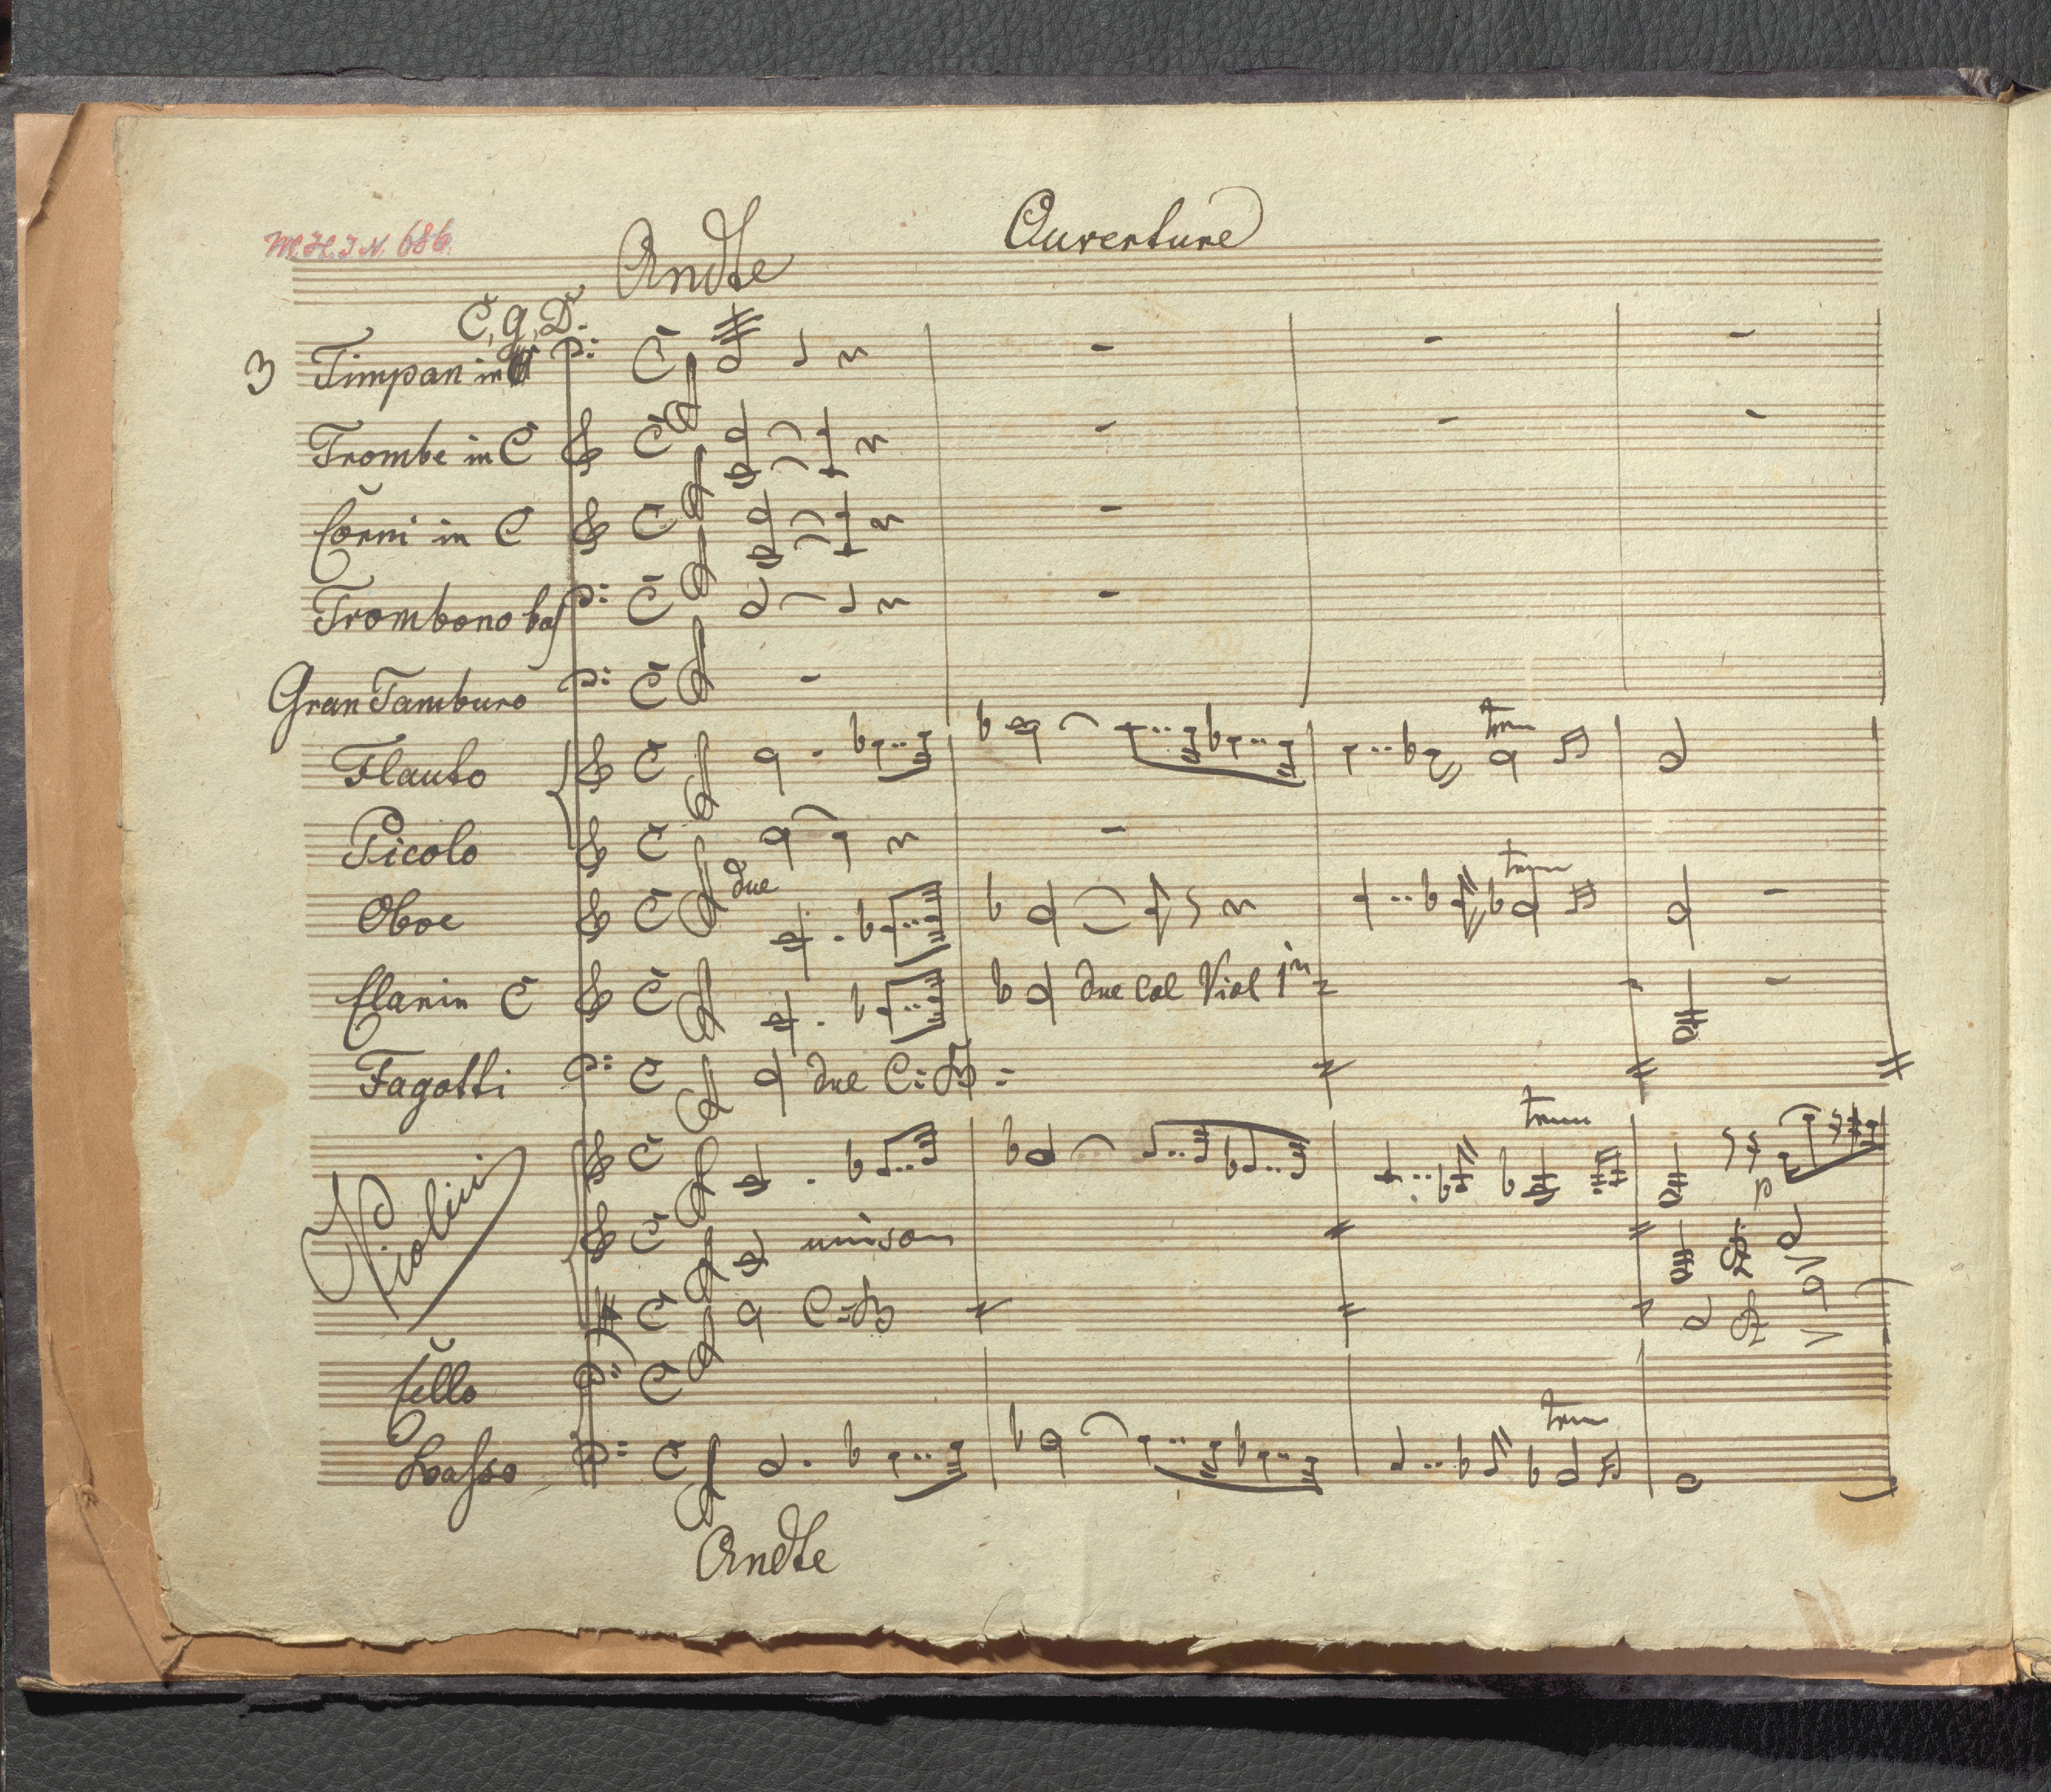 Ouverture
M.H.I.N. 686.
Andte
C, g, D.
3 Timpan in
Trombe in C
Corni in C
Trombono bass
Gran Tamburo
trm
Flauto
Picolo
due
trm
Oboe
Clarin C due Col Viol 1m
Fagotti due C: B
trm
Violini
p
unison
C: B
Cello
trm
Basso
Andte